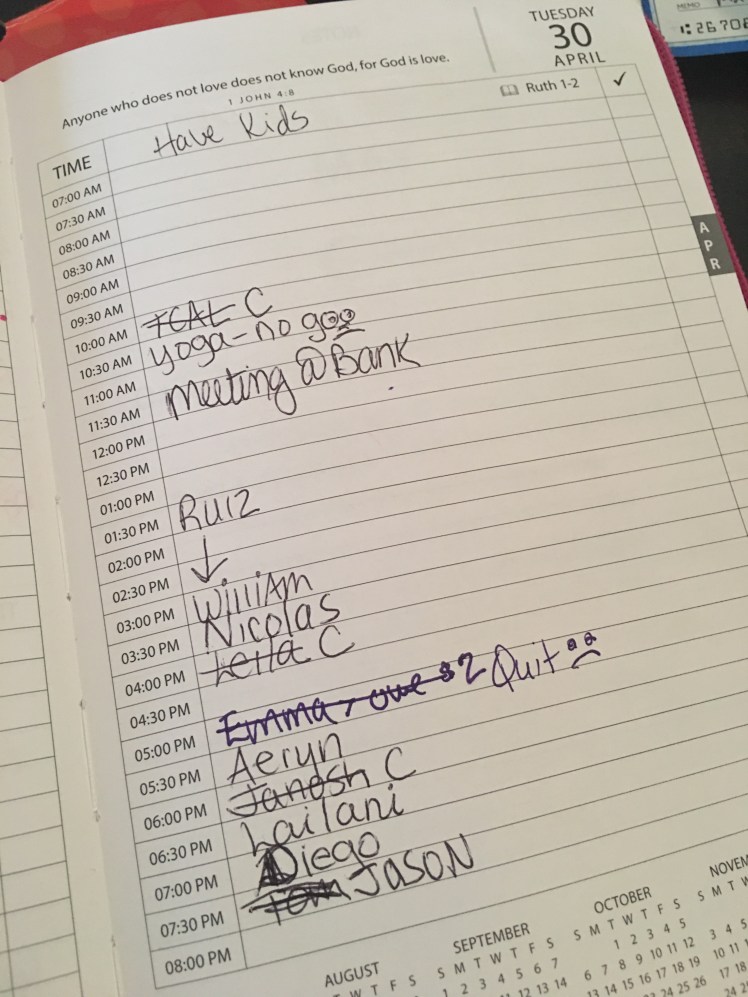 TUESDAY
30
APRIL
Anyone who does not love does not know God, for God is love.
1 JOHN 4:8
Ruth 1-2 ✓
TIME Have Kids
07:00 AM
07:30 AM
08:00 AM
08:30 AM
09:00 AM
09:30 AM
10:00 AM C
10:30 AM yoga-no goo
11:00 AM Meeting @ Bank
11:30 AM
12:00 PM
12:30 PM
01:00 PM
01:30 PM Ruiz
02:00 PM ↓
02:30 PM
03:00 PM William
03:30 PM Nicolas
04:00 PM Leila C
04:30 PM
05:00 PM Emma, owe $2 Quit
05:30 PM Aeryn
06:00 PM Janosh C
06:30 PM Lailani
07:00 PM Diego
07:30 PM Tom JASON
08:00 PM
APR
MEMO
AUGUST SEPTEMBER OCTOBER
T W T F S S M T W T F S S M T W T F S S M T W
1 2 3 4 5 6 7 1 2 3 4 5
12 13 14 6 7 8 9 10 11 12 3 4
17 18 19 10 11
24 25 26 17 18